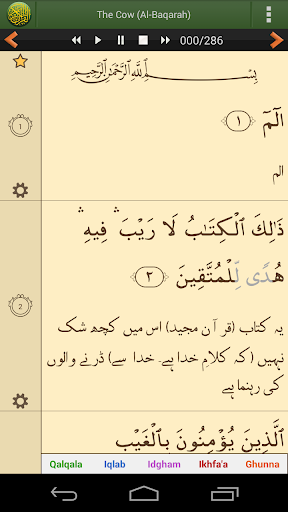 The Cow (Al-Baqarah)
000/286
بِسْمِ ٱللَّهِ ٱلرَّحْمَٰنِ ٱلرَّحِيمِ
1
الٓمٓ ﴿١﴾
الم
ذَٰلِكَ ٱلْكِتَٰبُ لَا رَيْبَ ۛ فِيهِ ۛ
هُدًى لِّلْمُتَّقِينَ ﴿٢﴾
2
یہ کتاب (قر آ ن مجید) اس میں کچھ شک
نہیں (کہ کلامِ خدا ہے۔ خدا سے) ڈرنے والوں
کی رہنما ہے
ٱلَّذِينَ يُؤْمِنُونَ بِٱلْغَيْبِ
Qalqala Iqlab Idgham Ikhfa'a Ghunna